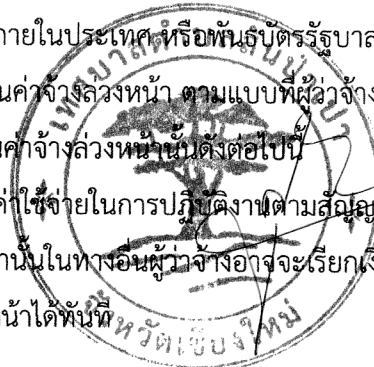 ภายในประเทศ หรือพันธบัตรรัฐบาล
นค่าจ้างล่วงหน้า ตามแบบที่ผู้ว่าจ้าง
นค่าจ้างล่วงหน้านั้นดังต่อไปนี้
ค่าใช้จ่ายในการปฏิบัติงานตามสัญญ
านั้นในทางอื่นผู้ว่าจ้างอาจจะเรียกเงิ
น้าได้ทันที
เทศบาลตำบลสันป่า
จังหวัดเชียงใหม่